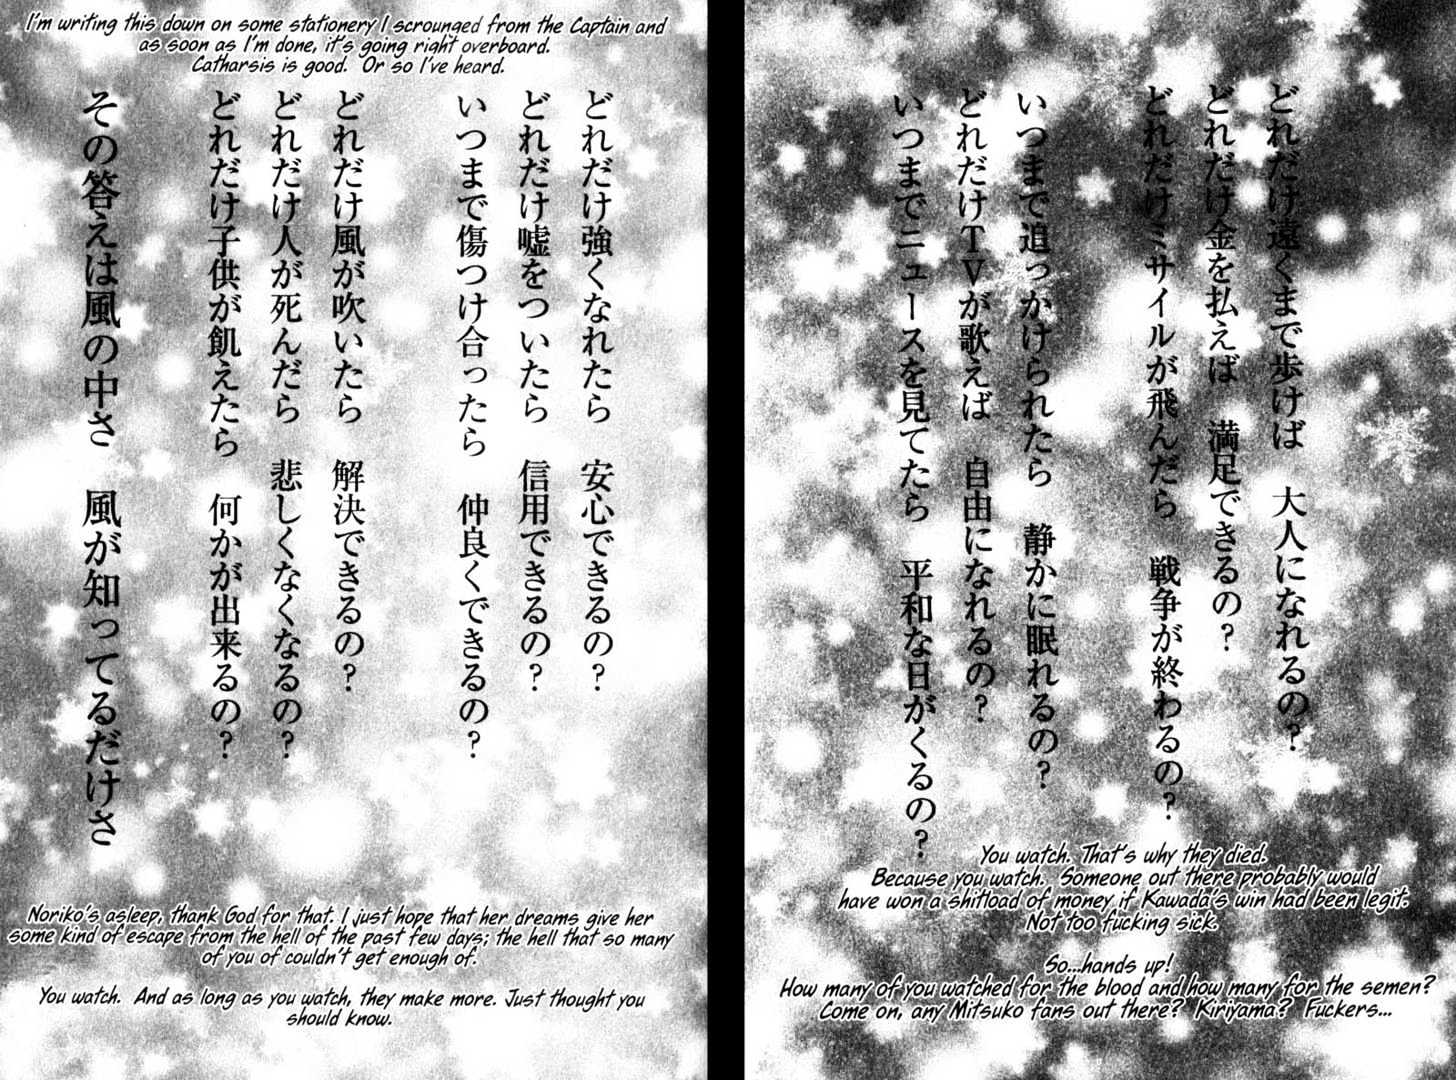 どれだけ遠くまで歩けば　大人になれるの？
どれだけ金を払えば　満足できるの？
どれだけミサイルが飛んだら　戦争が終わるの？
いつまで追っかけられたら　静かに眠れるの？
どれだけTVが歌えば　自由になれるの？
いつまでニュースを見てたら　平和な日がくるの？
You watch. That's why they died.
Because you watch. Someone out there probably would
have won a shitload of money if Kawada's win had been legit.
Not too fucking sick.
So...hands up!
How many of you watched for the blood and how many for the semen?
Come on, any Mitsuko fans out there? Kiriyama? Fuckers...
I'm writing this down on some stationery I scrounged from the Captain and
as soon as I'm done, it's going right overboard.
Catharsis is good. Or so I've heard.
どれだけ強くなれたら　安心できるの？
どれだけ嘘をついたら　信用できるの？
いつまで傷つけ合ったら　仲良くできるの？
どれだけ風が吹いたら　解決できるの？
どれだけ人が死んだら　悲しくなくなるの？
どれだけ子供が飢えたら　何かが出来るの？
その答えは風の中さ　風が知ってるだけさ
Noriko's asleep, thank God for that. I just hope that her dreams give her
some kind of escape from the hell of the past few days; the hell that so many
of you of couldn't get enough of.
You watch. And as long as you watch, they make more. Just thought you
should know.